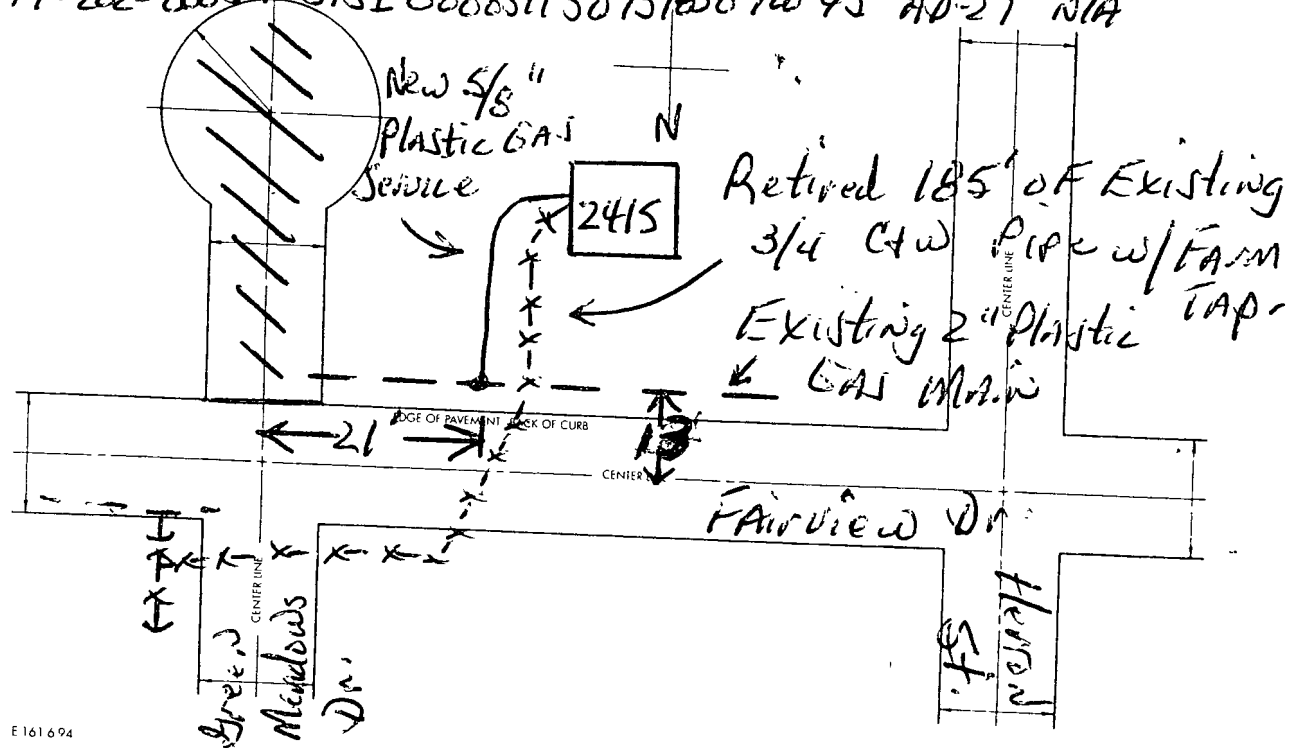 AD-27 N/A
New 5/8"
Plastic GAS
Service
N
2415
Retired 185' of Existing
3/4 C+W Pipe w/ FARM
TAP.
Existing 2" Plastic
GAS Main
CENTER LINE
EDGE OF PAVEMENT BACK OF CURB
21'
13'
CENTER
FAirview Dr.
CENTER LINE
Green
Meadows
Dr.
St.
E 161694